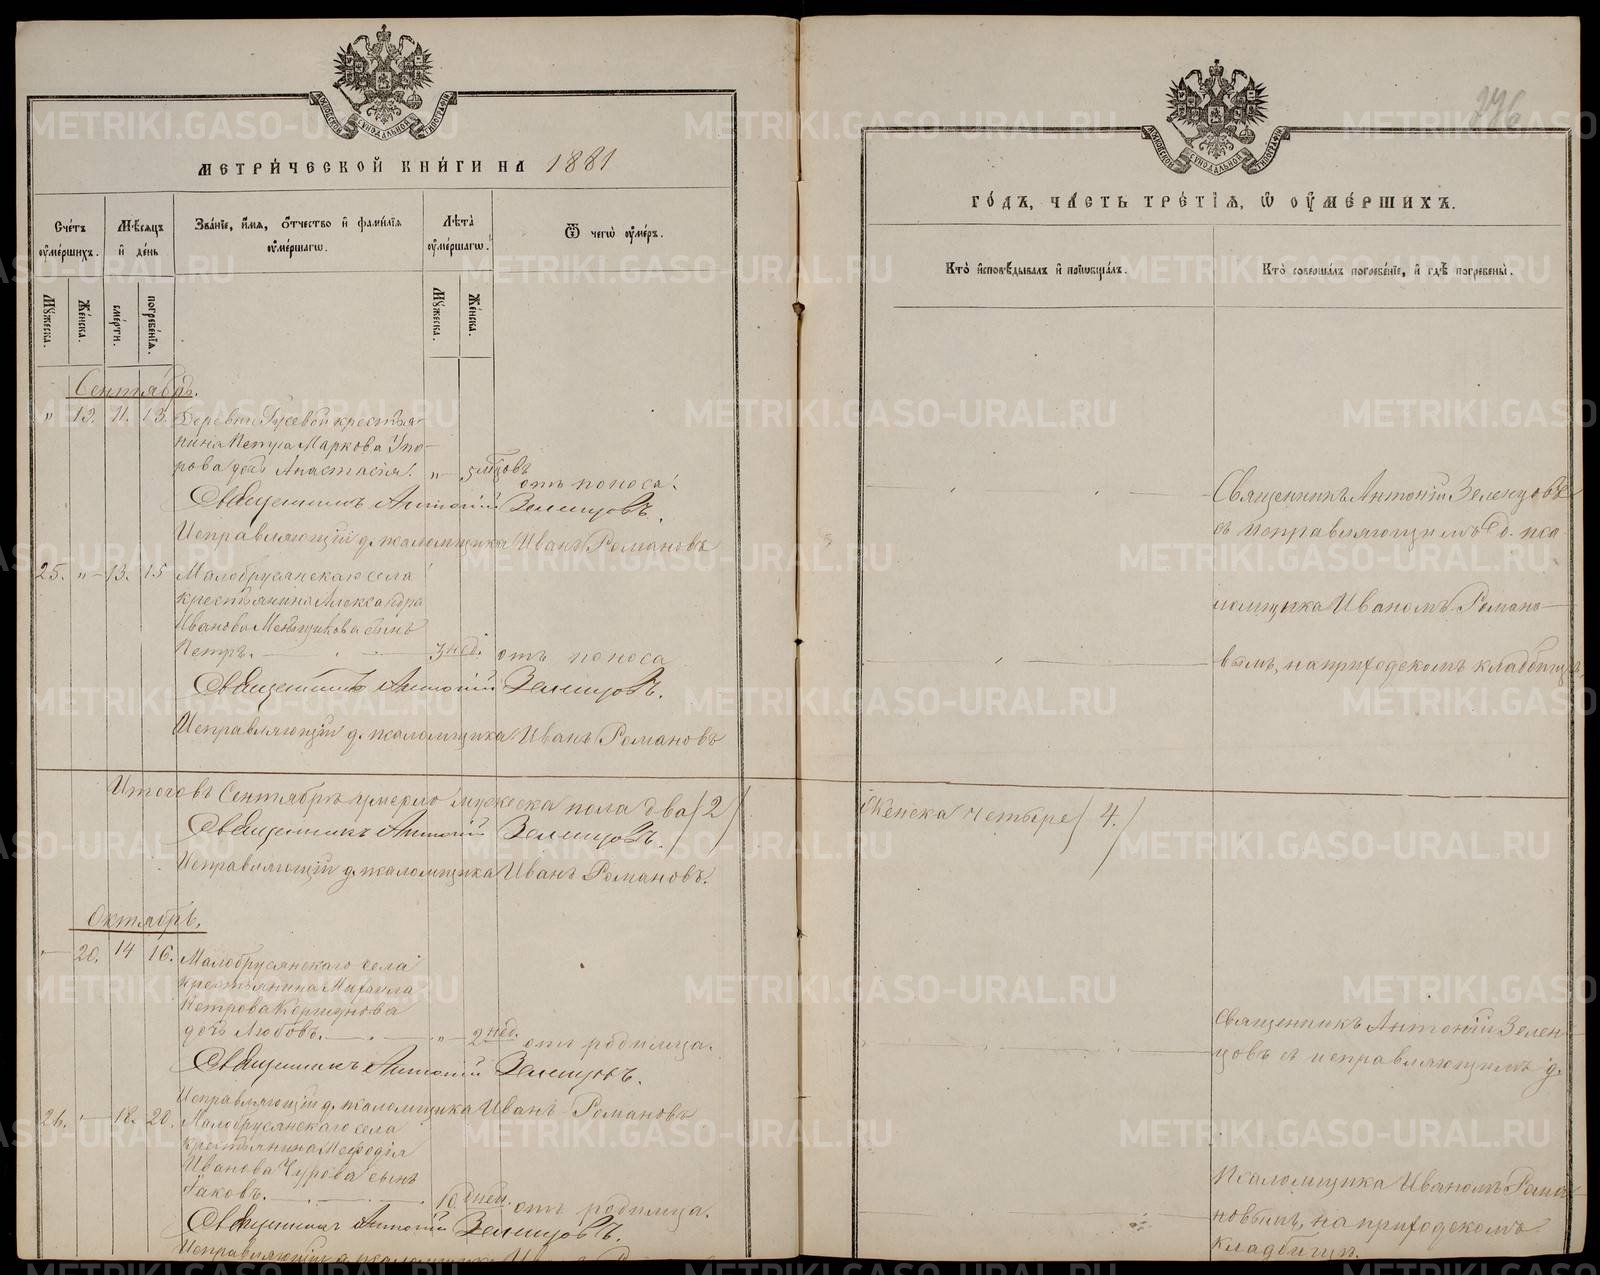 276
МОСКОВСКОЙ СѴНОДАЛЬНОЙ ТИПОГРАФІИ
МЕТРИЧЕСКОЙ КНИГИ НА 1881
Счетъ умершихъ.
Мѣсяцъ и день
Званіе, имя, отчество и фамилія умершаго.
Лѣта умершаго.
Ѿ чего умеръ.
Мужеска.
Женска.
смерти.
погребенія.
Мужеска.
Женска.
Сентябрь.
" 19. 11. 13. Деревни крестья-
нина Петра Маркова Упо-
рова дочь Анастасія. " 5 мѣсцовъ
отъ поноса.
Священникъ Антоній Зеленцовъ.
Исправляющій д. псаломщика Иванъ Романовъ
25. " 13. 15 Малобрусянскаго села
крестьянина Александра
Иванова Меньщикова сынъ
Петръ. 3 нед. отъ поноса
Священникъ Антоній Зеленцовъ.
Исправляющій д. псаломщика Иванъ Романовъ
Итого въ Сентябрѣ умерло мужеска пола два (2)
Священникъ Антоній Зеленцовъ.
Исправляющій д. псаломщика Иванъ Романовъ.
Октябрь.
20. 14 16. Малобрусянскаго села
крестьянина Михаила
Петрова Коршунова
дочь Любовь. " 2 нед. отъ родимца.
Священникъ Антоній Зеленцовъ.
Исправляющій д. псаломщика Иванъ Романовъ
26. 18. 20. Малобрусянскаго села
крестьянина Меѳодія
Иванова Чурова сынъ
Іаковъ. 10 дней. отъ родимца.
Священникъ Антоній Зеленцовъ.
Исправляющій д. псаломщика Иванъ Романовъ
МОСКОВСКОЙ СѴНОДАЛЬНОЙ ТИПОГРАФІИ
ГОДЪ, ЧАСТЬ ТРЕТІЯ, Ѡ УМЕРШИХЪ.
Кто исповѣдывалъ и пріобщалъ.
Кто совершалъ погребеніе, и гдѣ погребены.
Священникъ Антоній Зеленцовъ
съ исправляющимъ д. пса
ломщика Иваномъ Романо-
вымъ, на приходскомъ кладбищѣ.
Женска четыре (4.)
Священникъ Антоній Зелен-
цовъ съ исправляющимъ д.
Псаломщика Иваномъ Рома-
новымъ, на приходскомъ
кладбищѣ.
METRIKI.GASO-URAL.RU